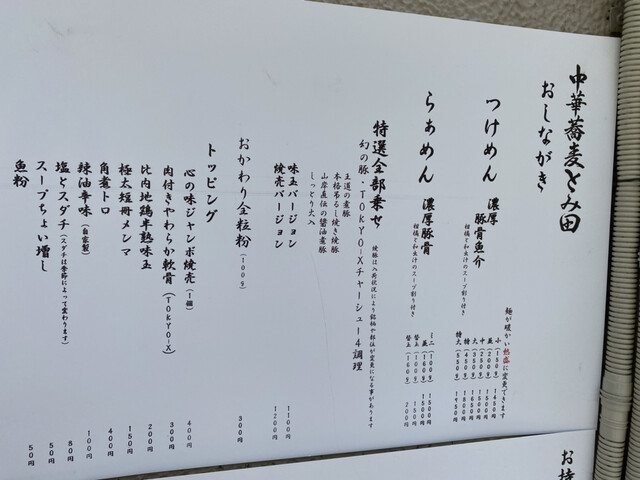 中華蕎麦とみ田
おしながき
麺が暖かい熱盛に変更できます
つけめん 濃厚豚骨魚介
柑橘と和出汁のスープ割り付き
小 (150g) 1450円
並 (200g) 1500円
中 (250g) 1500円
大 (350g) 1650円
特 (450g) 1800円
特大 (550g) 1950円
らぁめん 濃厚豚骨
柑橘と和出汁のスープ割り付き
ミニ (100g) 1500円
並 (160g) 1500円
替玉 (100g) 150円
替玉 (160g) 200円
特選全部乗せ
焼豚は入荷状況により銘柄や部位が変更になる事があります
幻の豚・TOKYO-Xチャーシュー4調理
王道の煮豚
本格吊るし焼き焼豚
山岸直伝の醤油煮豚
しっとり火入
味玉バージョン 1100円
焼売バージョン 1200円
おかわり全粒粉 (100g) 300円
トッピング
心の味ジャンボ焼売 (1個) 400円
肉付きやわらか軟骨 (TOKYO-X) 300円
比内地鶏半熟味玉 200円
極太短冊メンマ 150円
角煮トロ 400円
辣油辛味 (自家製) 100円
塩とスダチ (スダチは季節によって変わります) 80円
スープちょい増し 50円
魚粉 50円
お持